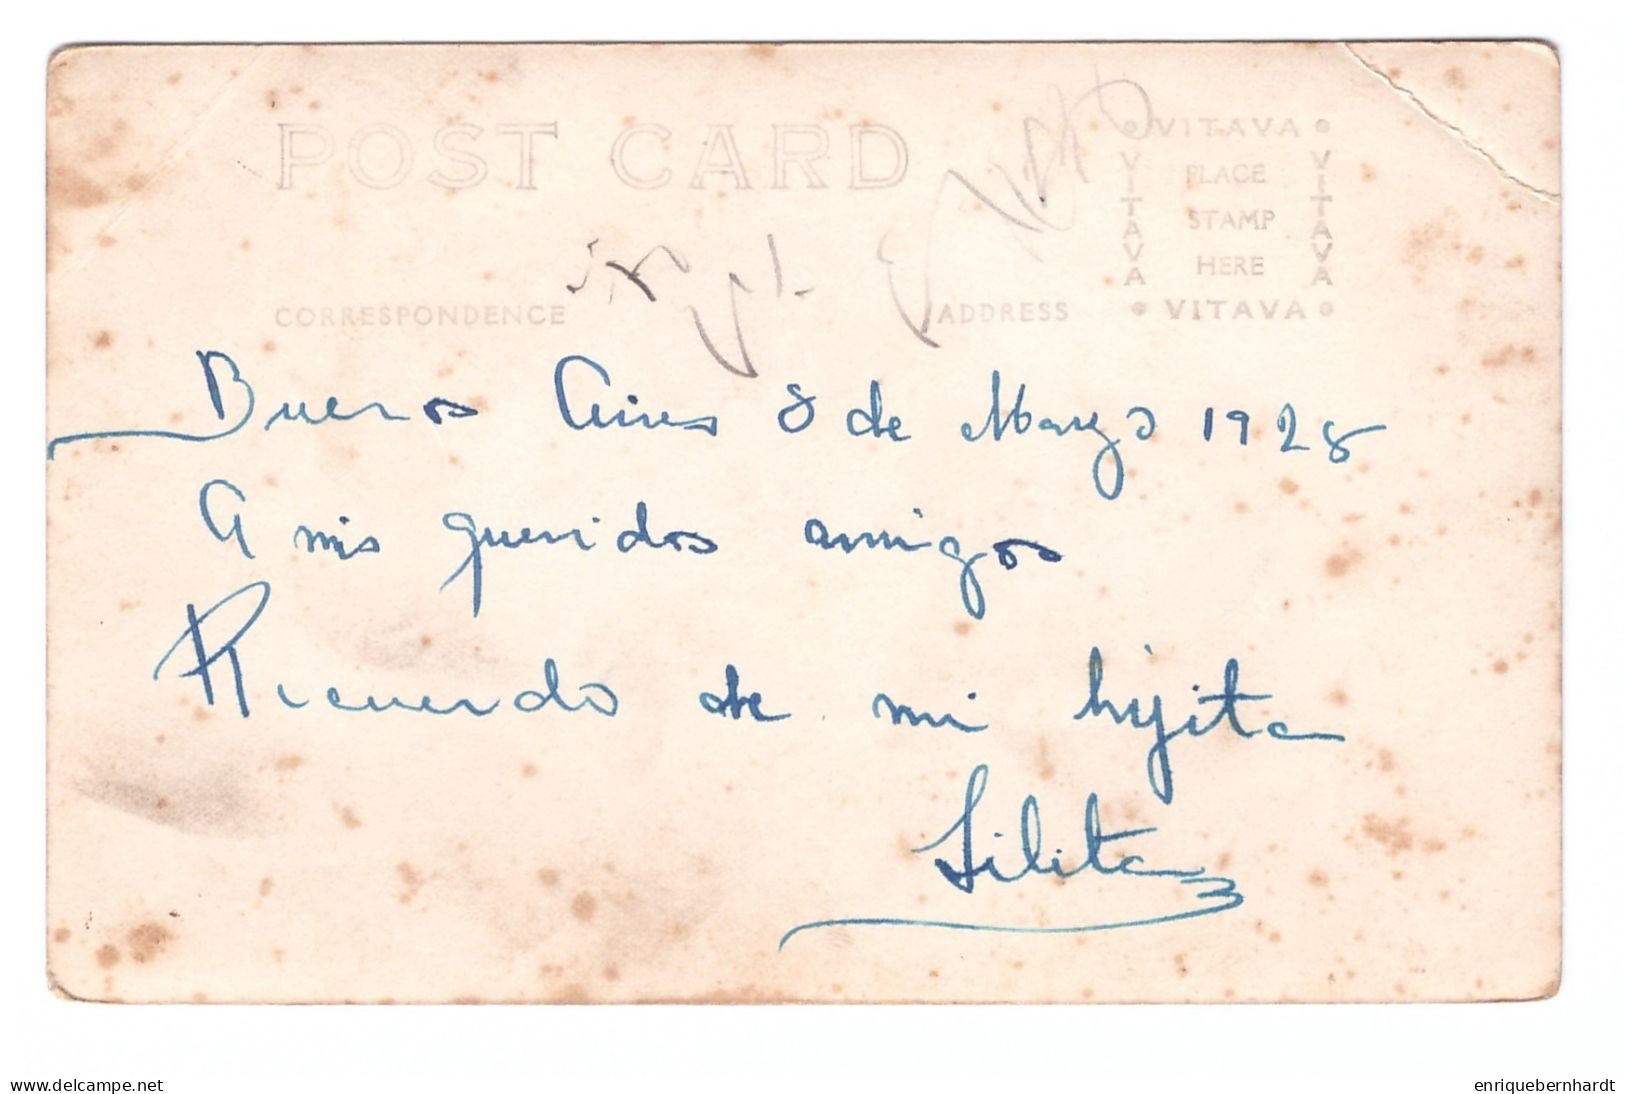 POST CARD
VITAVA
VITAVA
PLACE
STAMP
HERE
VITAVA
VITAVA
CORRESPONDENCE
ADDRESS
Buenos Aires 8 de Marzo 1928
A mis queridos amigos
Recuerdo de mi hijita
Lilita
www.delcampe.net
enriquebernhardt